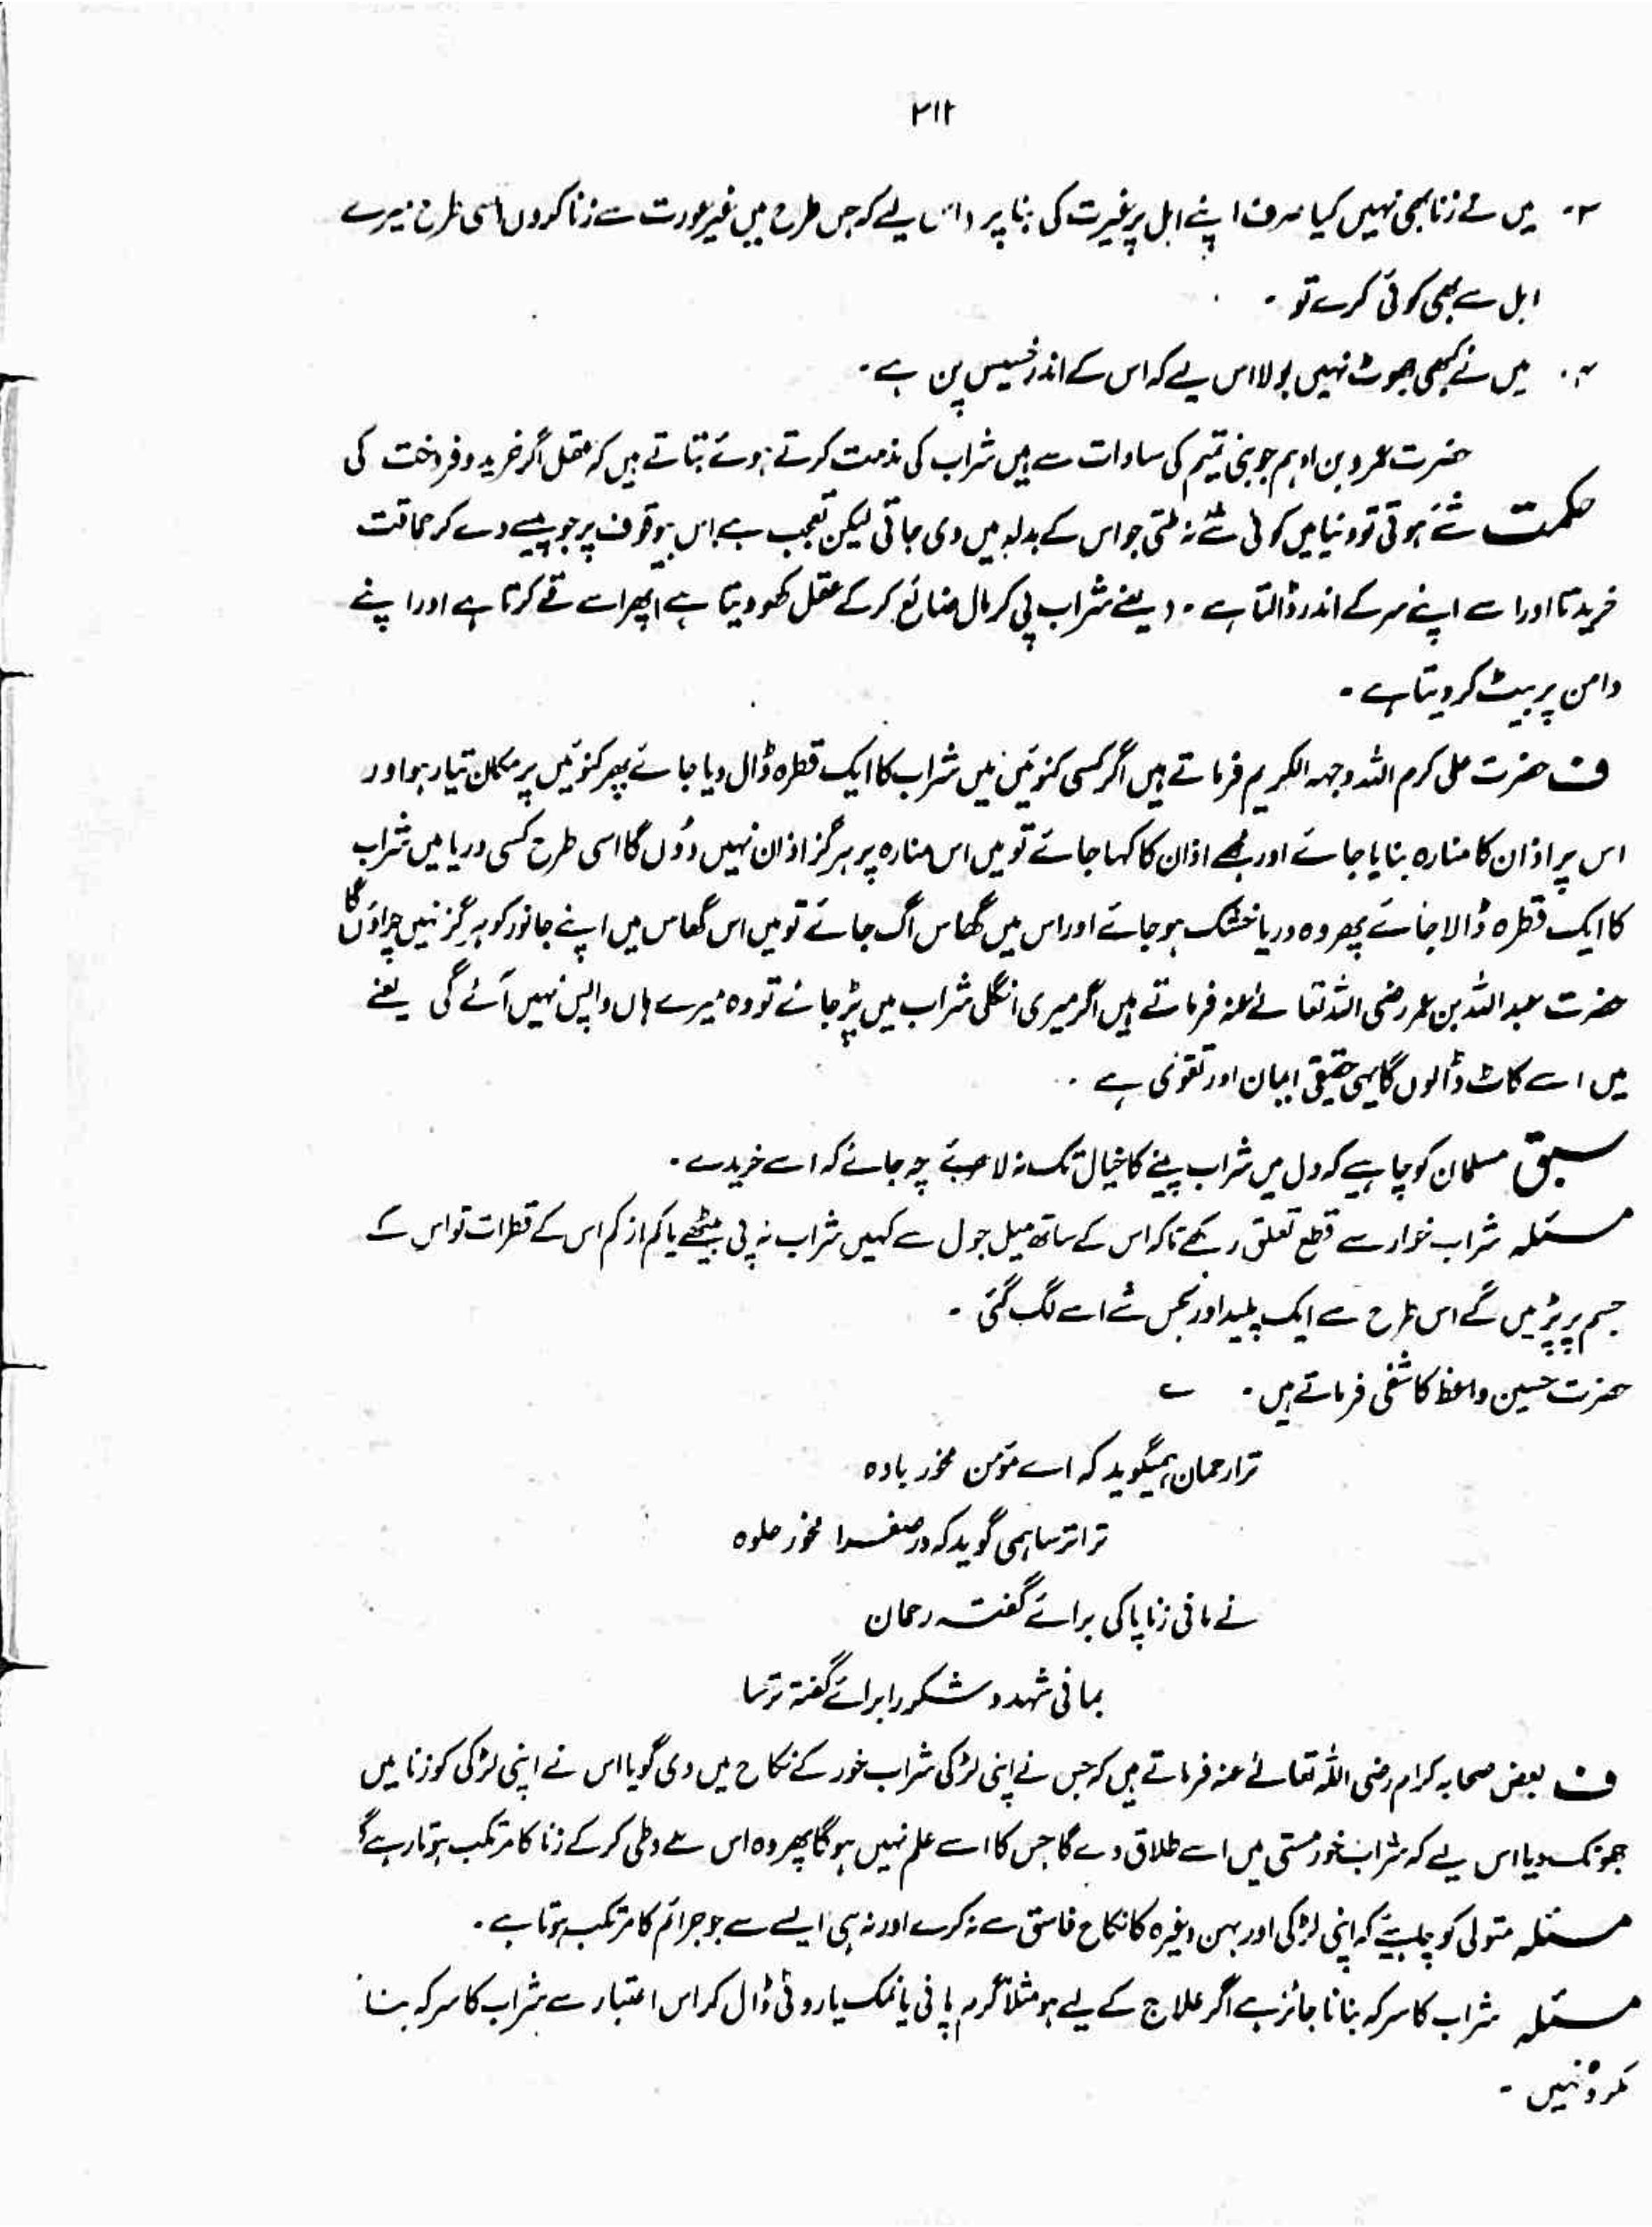 ۲۱۲
۳۔ میں نے زنا بھی نہیں کیا صرف اپنے اہل پر غیرت کی بنا پر (اس لیے کہ جس طرح میں غیر عورت سے زنا کروں اسی طرح میرے
اہل سے بھی کوئی کرے تو ۔
۴۔ میں نے کبھی جھوٹ نہیں بولا اس لیے کہ اس کے اندر خسیس پن ہے۔
حضرت عمرو بن ادہم جو بنی تمیم کی سادات سے ہیں شراب کی مذمت کرتے ہوئے بتاتے ہیں کہ عقل اگر خرید و فروخت کی
حکمت شے ہوتی تو دنیا میں کوئی شے نہ ملتی جو اس کے بدلہ میں دی جاتی لیکن تعجب ہے اس بیوقوف پر جو پیسے دے کر حماقت
خریدتا اور اسے اپنے سر کے اندر ڈالتا ہے ۔ (یعنے شراب پی کر مال ضائع کر کے عقل کھو دیتا ہے) پھر اسے قے کرتا ہے اور اپنے
دامن پر بیٹ کر دیتا ہے ۔
ف حضرت علی کرم اللہ وجہہ الکریم فرماتے ہیں اگر کسی کنوئیں میں شراب کا ایک قطرہ ڈال دیا جائے پھر کنوئیں پر مکان تیار ہو اور
اس پر اذان کا منارہ بنایا جائے اور مجھے اذان کا کہا جائے تو میں اس منارہ پر ہرگز اذان نہیں دوں گا اسی طرح کسی دریا میں شراب
کا ایک قطرہ ڈالا جائے پھر وہ دریا خشک ہو جائے اور اس میں گھاس اگ جائے تو میں اس گھاس میں اپنے جانور کو ہرگز نہیں چراؤں گا
حضرت عبداللہ بن عمر رضی اللہ تعالےٰ عنہ فرماتے ہیں اگر میری انگلی شراب میں پڑ جائے تو وہ میرے ہاں واپس نہیں آئے گی یعنے
میں اسے کاٹ ڈالوں گا یہی حقیقی ایمان اور تقویٰ ہے ۔
سبق مسلمان کو چاہیے کہ دل میں شراب پینے کا خیال تک نہ لائے چہ جائے کہ اسے خریدے ۔
مسئلہ شراب خوار سے قطع تعلق رکھے تاکہ اس کے ساتھ میل جول سے کہیں شراب نہ پی بیٹھے یا کم از کم اس کے قطرات تو اس کے
جسم پر پڑیں گے اس طرح سے ایک پلید اور نجس شے اسے لگ گئی ۔
حضرت حسین واعظ کاشفی فرماتے ہیں ۔ ؎
ترا رحمان ہمیگوید کہ اے مؤمن مخور بادہ
ترا ترسا ہمی گوید کہ در صفرا مخور حلوہ
نے مانی ز ناپاکی برائے گفتہ رحمان
بمانی شہد و شکر را برائے گفتہ ترسا
ف بعض صحابہ کرام رضی اللہ تعالےٰ عنہ فرماتے ہیں کہ جس نے اپنی لڑکی شراب خور کے نکاح میں دی گویا اس نے اپنی لڑکی کو زنا میں
جھونک دیا اس لیے کہ شراب خور مستی میں اسے طلاق دے گا جس کا اسے علم نہیں ہو گا پھر وہ اس سے وطی کر کے زنا کا مرتکب ہوتا رہے گا
مسئلہ متولی کو چاہیئے کہ اپنی لڑکی اور بہن وغیرہ کا نکاح فاسق سے نہ کرے اور نہ ہی ایسے سے جو جرائم کا مرتکب ہوتا ہے ۔
مسئلہ شراب کا سرکہ بنانا جائز ہے اگر علاج کے لیے ہو مثلاً گرم پانی یا نمک یا روٹی ڈال کر اس اعتبار سے شراب کا سرکہ بنانا
مکروہ نہیں ۔